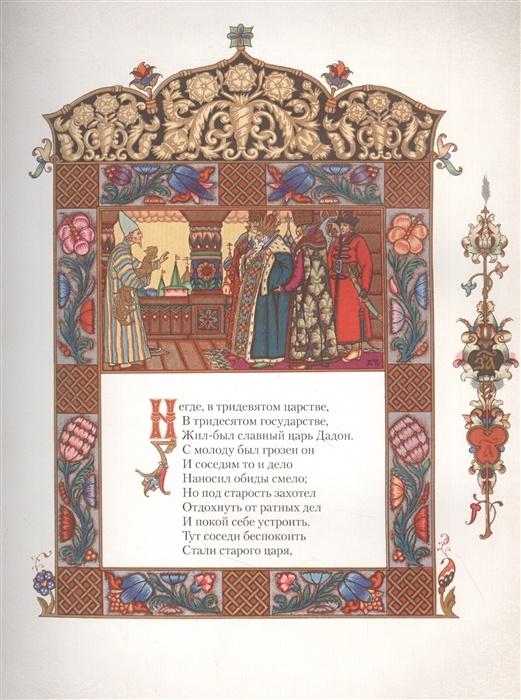 Негде, в тридевятом царстве,
В тридесятом государстве,
Жил-был славный царь Дадон.
С молоду был грозен он
И соседям то и дело
Наносил обиды смело;
Но под старость захотел
Отдохнуть от ратных дел
И покой себе устроить.
Тут соседи беспокоить
Стали старого царя,